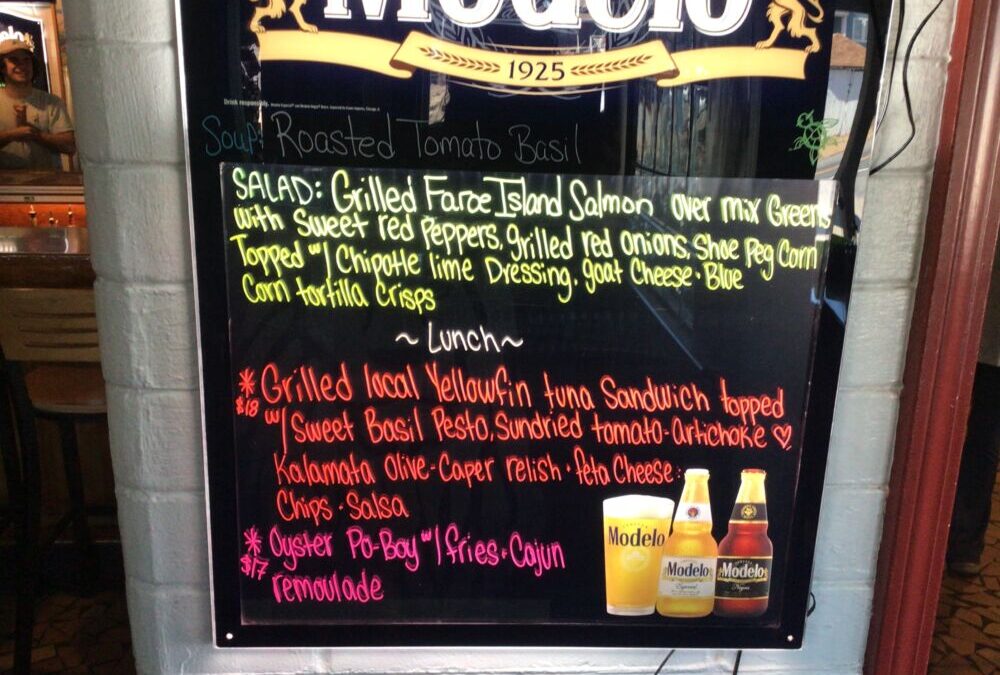 Modelo
1925
Drink responsibly.
Soup: Roasted Tomato Basil
SALAD: Grilled Faroe Island Salmon over mix Greens
with Sweet red Peppers, grilled red onions, Shoe Peg Corn
Topped w/ Chipotle lime Dressing, goat Cheese · Blue
Corn tortilla Crisps
~ Lunch ~
* Grilled local Yellowfin tuna Sandwich topped
$18 w/ Sweet Basil Pesto, Sundried tomato-artichoke ♡
Kalamata Olive-Caper relish · feta Cheese:
Chips · Salsa
* Oyster Po-Boy w/ fries · Cajun
$17 remoulade
Modelo
Modelo
Especial
Modelo
Negra